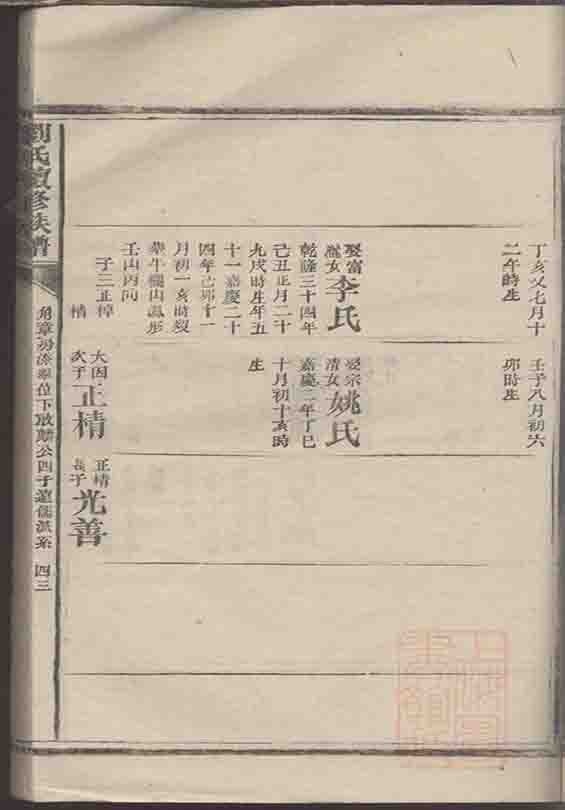 丁亥又七月十
二午時生
壬子八月初六
卯時生
娶富
女李氏
乾隆三十四年
己丑正月二十
九戌時生年五
十一嘉慶二十
四年己卯十一
月初一亥時歿
葬牛欄山鳳形
壬山丙向
子三正樟
情
娶宗
清女姚氏
嘉慶二年丁巳
十月初十亥時
生
大因
次子正精
正精
長子光善
劉氏續修族譜
房 公四子 儒派系 四三